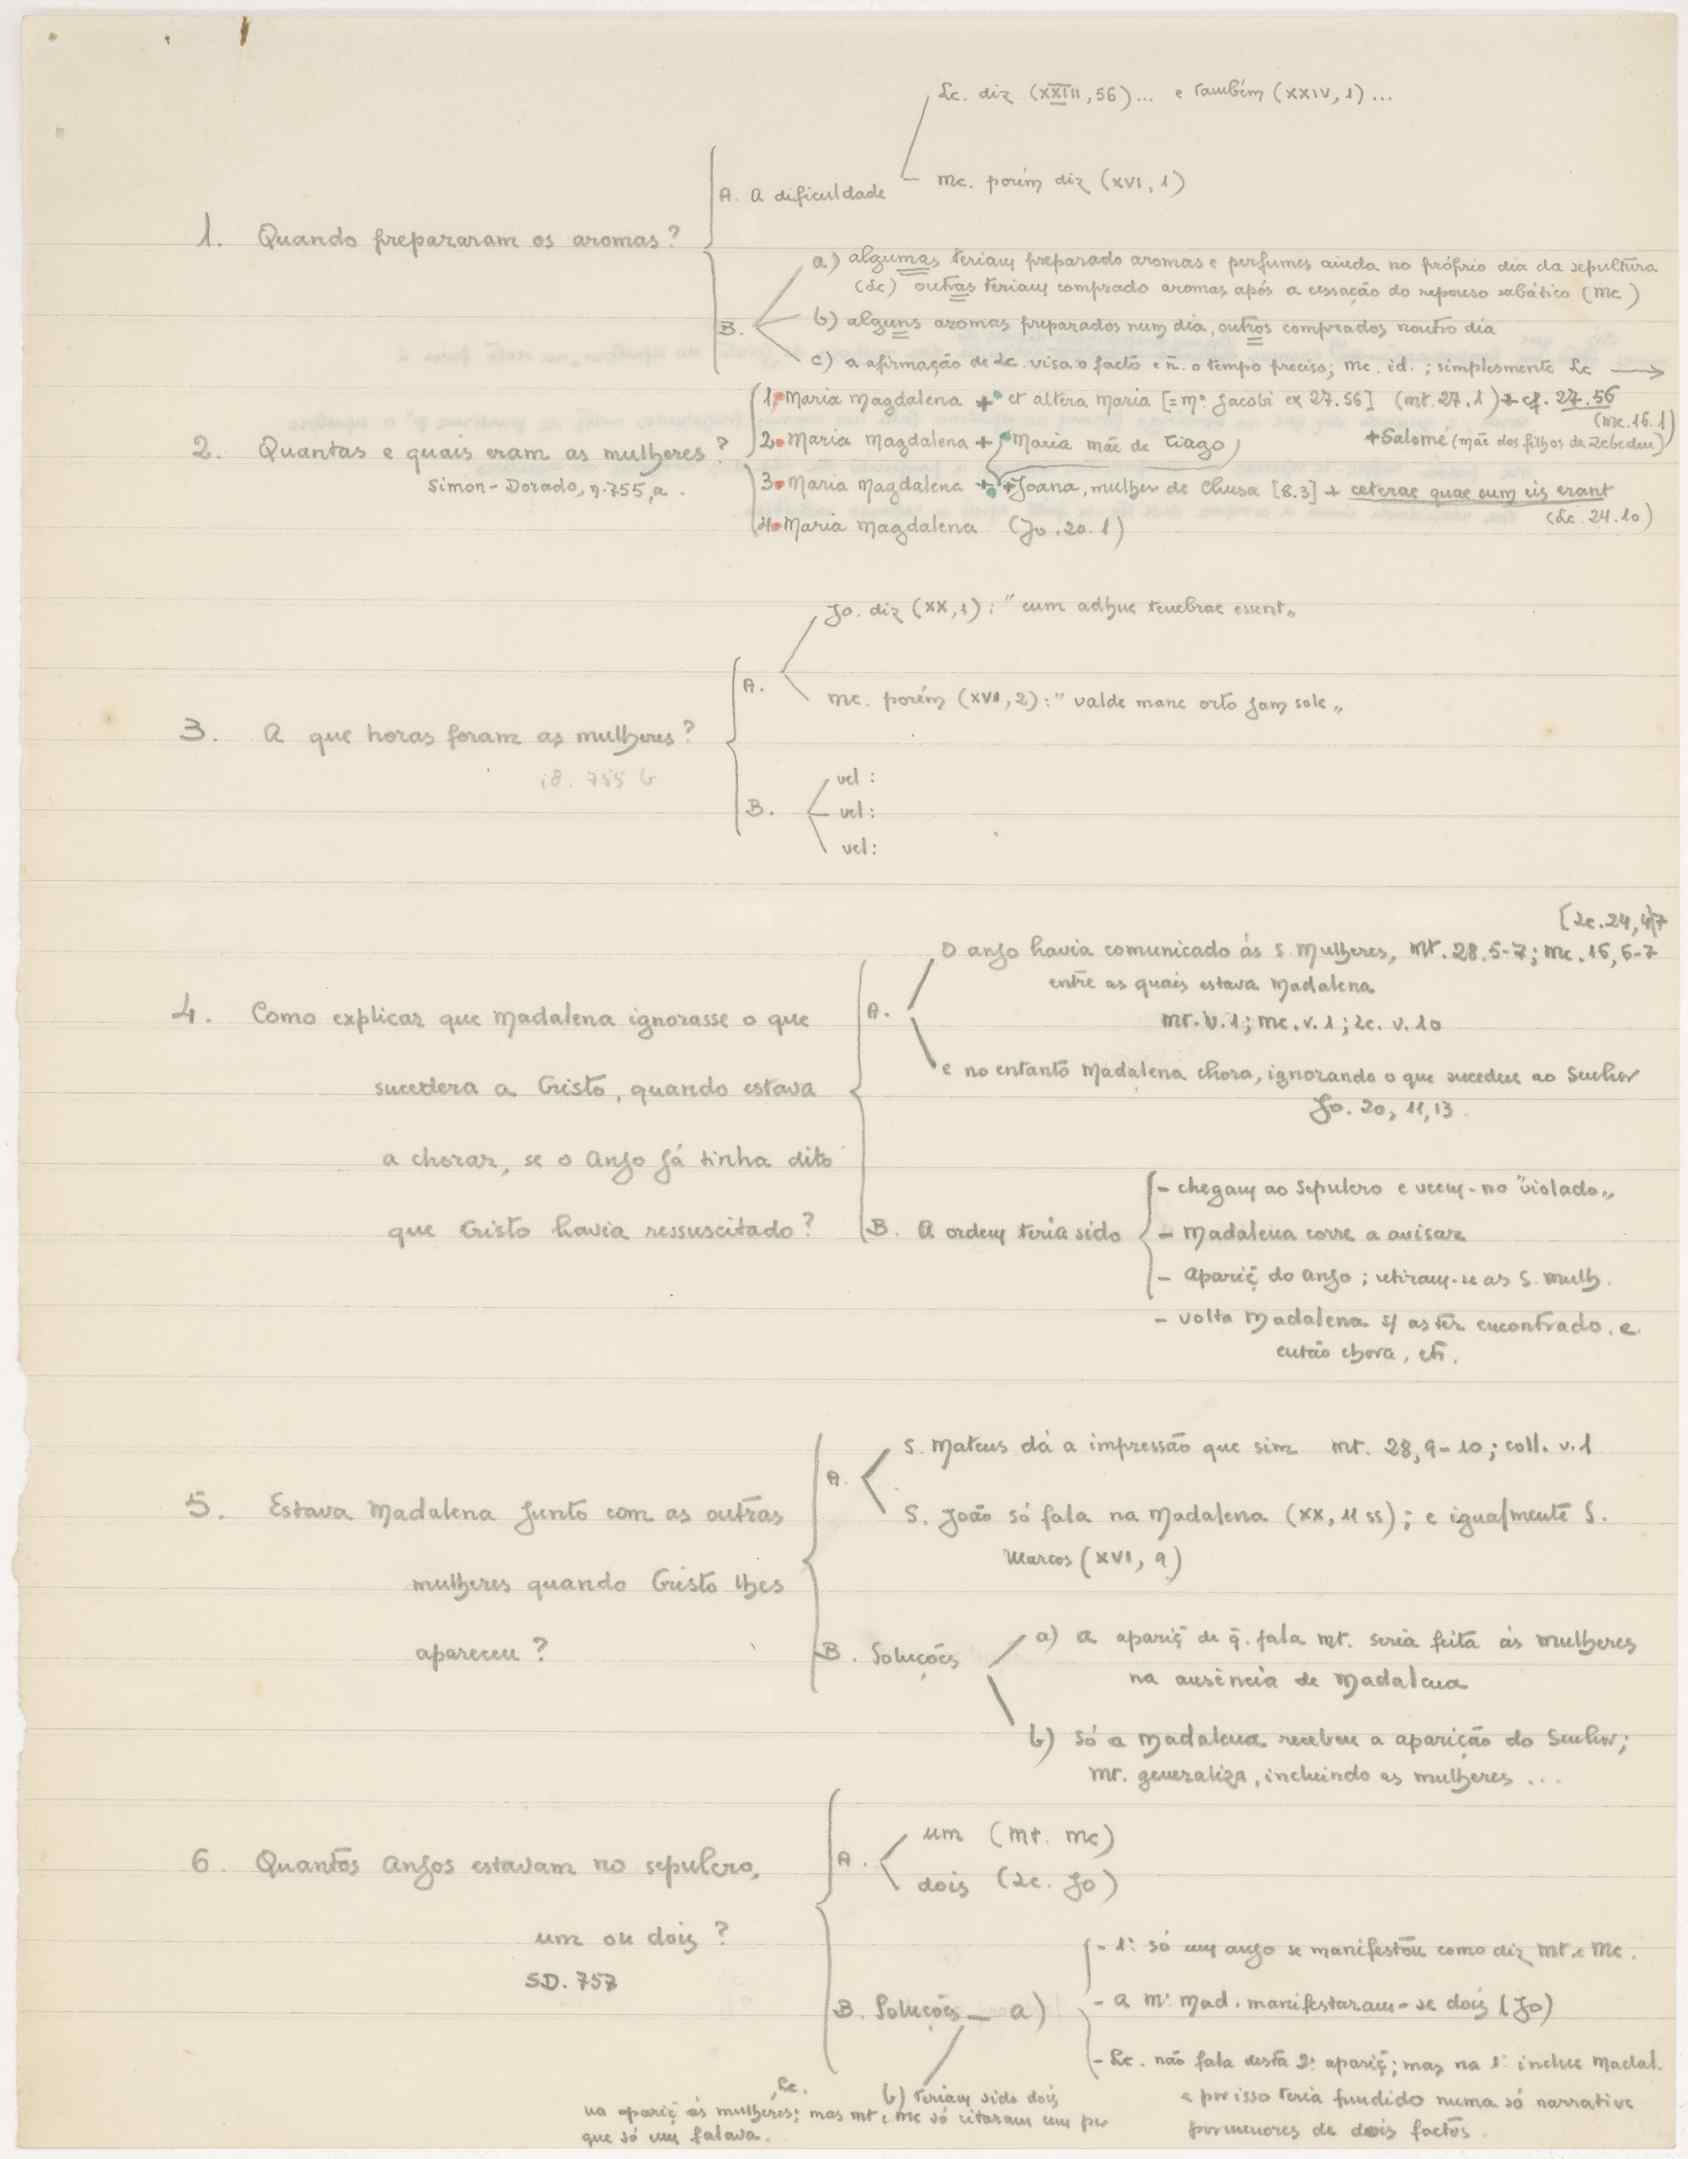 Lc. diz (XXIII, 56)... e também (XXIV, 1)...
A. A dificuldade
Mc. porém diz (XVI, 1)
1. Quando prepararam os aromas?
a) algumas teriam preparado aromas e perfumes ainda no próprio dia da sepultura
(Lc) outras teriam comprado aromas após a cessação do repouso sabático (Mc)
B.
b) alguns aromas preparados num dia, outros comprados noutro dia
c) a afirmação de Lc. visa o facto e ñ. o tempo preciso; Mc. id.; simplesmente Lc →
1. Maria Magdalena + et altera Maria [= Mª Jacobi ex 27.56] (Mt. 27.1) cf. 27.56
(Mc. 16.1)
2. Quantas e quais eram as mulheres?
2. Maria Magdalena + Maria mãe de Tiago
+ Salomé (mãe dos filhos de Zebedeu)
Simon-Dorado, n. 755, a.
3. Maria Magdalena + + Joana, mulher de Chusa [8.3] + ceterae quae cum eis erant
(Lc. 24.10)
4. Maria Magdalena (Jo. 20. 1)
Jo. diz (XX, 1): "cum adhuc tenebrae essent"
A.
Mc. porém (XVI, 2): "valde mane orto jam sole"
3. A que horas foram as mulheres?
ib. 755 b
vel:
B. vel:
vel:
[Lc. 24, 4]7
O anjo havia comunicado às S. Mulheres, Mt. 28. 5-7; Mc. 16, 6-7
entre as quais estava Madalena
4. Como explicar que Madalena ignorasse o que
A.
Mt. v. 1; Mc. v. 1; Lc. v. 10
e no entanto Madalena chora, ignorando o que sucedeu ao Senhor
sucedera a Cristo, quando estava
Jo. 20, 11, 13.
a chorar, se o Anjo já tinha dito
- chegam ao Sepulcro e veem-no "violado"
que Cristo havia ressuscitado?
B. A ordem teria sido
- Madalena corre a avisar
- Apariç do anjo; retiram-se as S. Mulh.
- volta Madalena s/ as ter encontrado. e
então chora, etc.
S. Mateus dá a impressão que sim Mt. 28, 9-10; coll. v. 1
A.
5. Estava Madalena junto com as outras
S. João só fala na Madalena (XX, 11 ss); e igualmente S.
Marcos (XVI, 9)
mulheres quando Cristo lhes
apareceu?
B. Soluções
a) a apariç de q̃. fala Mt. seria feita às mulheres
na ausência de Madalena
b) só a Madalena recebeu a aparição do Senhor;
Mt. generaliza, incluindo as mulheres ...
um (Mt. Mc)
6. Quantos Anjos estavam no sepulcro,
A.
dois (Lc. Jo)
um ou dois?
SD. 757
- 1º só um anjo se manifestou como diz Mt. e Mc.
B. Soluções - a)
- a Mª Mad. manifestaram-se dois (Jo)
- Lc. não fala desta 2ª apariç; mas na 1ª inclue Madal.
e por isso teria fundido numa só narrativa
pormenores de dois factos.
b) teriam sido dois
na apariç às mulheres; Lc. mas Mt e Mc só citaram um por
que só um falava.